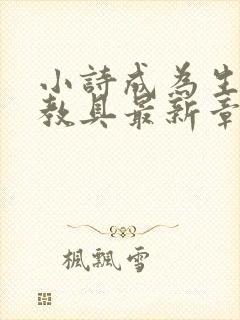 小詩成為生
教具最新章
楓飄雪